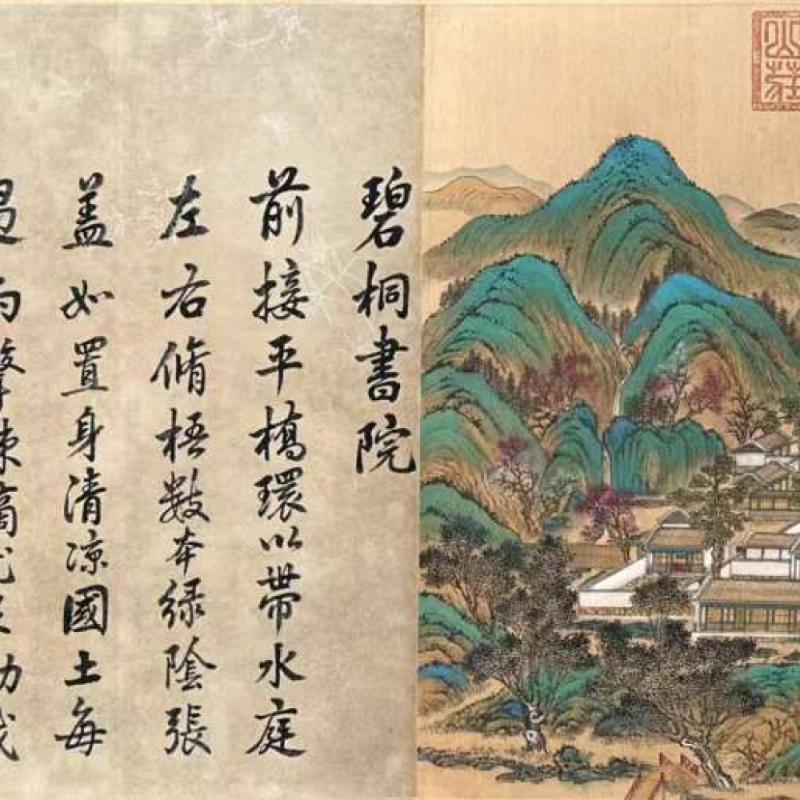 山莊
碧桐書院
前接平橋環以帶水庭
左右脩梧數本綠陰張
蓋如置身清涼國土每